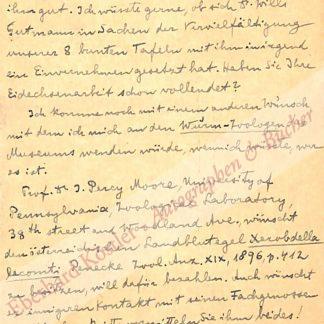 ihm gut. Ich wüsste gerne, ob sich D. Wills
Gutmann in Sachen der Vervielfältigung
unserer 8 bunten Tafeln mit ihm irgend
ein Einvernehmen gesetzt hat. Haben Sie Ihre
Eidechsenarbeit schon vollendet?
Ich komme noch mit einem anderen Wunsch
mit dem ich mich an den Wurm-Zoologen des
Museums wenden würde, wenn ich wüsste, wer
es ist.
Prof. Dr. J. Percy Moore, University of
Pennsylvania, Zoological Laboratory,
38th street and Woodland Ave., wünscht
den österreichischen Landblutegel Xerobdella
lecomtei Penecke Zool. Anz. XIX, 1896, p. 412
zu besitzen, will dafür bezahlen. Auch wünscht
er innigeren Kontakt mit seinen Fachgenossen
Sie ihm beides!
Eberhard Koestler Autographen & Bücher